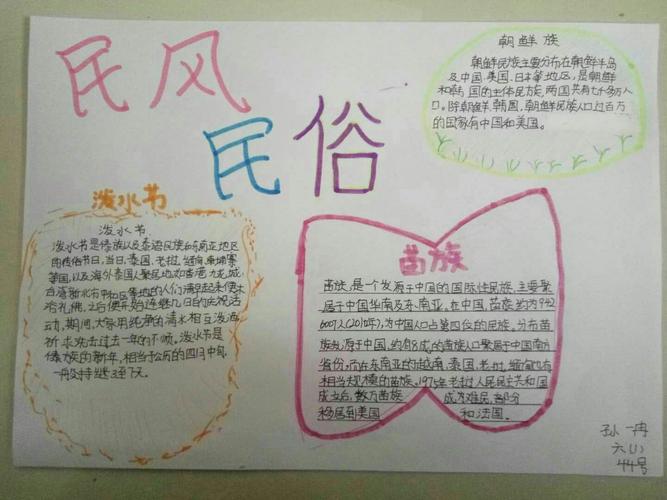 民风
民俗
朝鲜族
朝鲜民族主要分布在朝鲜半岛
及中国、美国、日本等地区,是朝鲜
和韩国的主体民族,两国共有七千多万人
口。除朝鲜、韩国,朝鲜民族人口过百万
的国家有中国和美国。
泼水节
泼水节
泼水节是傣族以及泰语民族和东南亚地区
的传统节日,当日,泰国、老挝、缅甸、柬埔寨
等国,以及海外泰国人聚居地如香港九龙城、
台湾新北市中和区等地的人们清早起来便沐
浴礼佛,之后便开始连续几日的庆祝活
动,期间,大家用纯净的清水相互泼洒,
祈求洗去过去一年的不顺。泼水节是
傣族的新年,相当于公历的四月中旬,
一般持续3至7天。
苗族
苗族,是一个发源于中国的国际性民族,主要聚
居于中国华南及东南亚。在中国,苗族约为942
6007人(2010年),为中国人口占第四位的民族。分布苗
族发源于中国,约有8成的苗族人口聚居于中国南方
省份。而在东南亚的越南、泰国、老挝、缅甸也有
相当大规模的苗族。1975年老挝人民民主共和国
成立后,数万苗族 成为难民,部分
移居到美国 和法国。
孙一冉
六(1)
44号